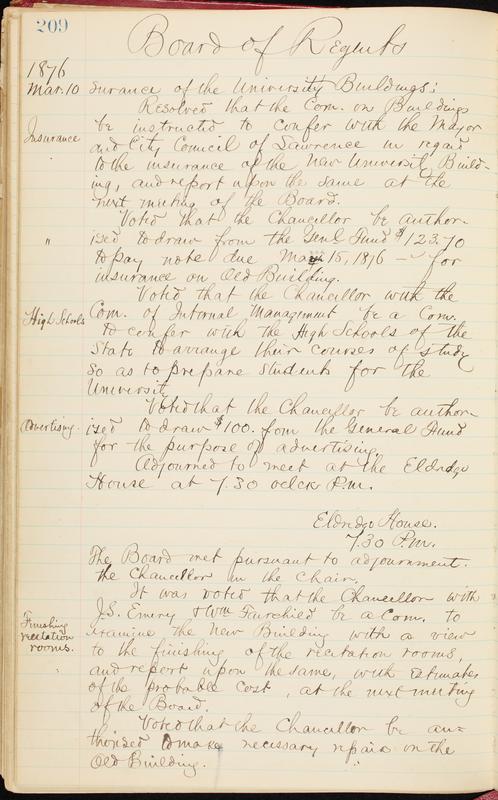 209
Board of Regents
1876
Mar. 10 surance of the University Buildings:
Resolved that the Com. on Buildings
Insurance be instructed to confer with the Mayor
and City Council of Lawrence in regard
to the insurance of the New University Build-
ing, and report upon the same at the
next meeting of the Board.
Voted that the Chancellor be author-
" ised to draw from the Genl Fund $123.70
to pay note due May 15, 1876 — for
insurance on Old Building.
Voted that the Chancellor with the
High Schools Com. of Internal Management be a Com.
to confer with the High Schools of the
State to arrange their courses of study
so as to prepare students for the
University.
Voted that the Chancellor be author-
Advertising. ised to draw $100. from the General Fund
for the purpose of advertising.
Adjourned to meet at the Eldridge
House at 7.30 oclck P.M.
Eldridge House.
7.30 P.M.
The Board met pursuant to adjournment.
the Chancellor in the Chair.
It was voted that the Chancellor with
Finishing recitation rooms. J.S. Emery & Wm Fairchild be a Com. to
examine the New Building with a view
to the finishing of the recitation rooms,
and report upon the same, with estimates
of the probable cost, at the next meeting
of the Board.
Voted that the Chancellor be au=
thorised to make necessary repairs on the
Old Building.